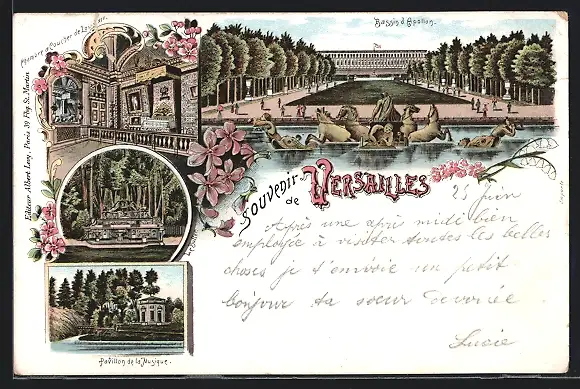 Chambre à Coucher de Louis XIV.
Bassin d'Apollon.
Editeur Albert Levy, Paris 19 Fbg. St. Martin
Souvenir
de VERSAILLES
25 Juin
Après une après midi bien
employée à visiter toutes les belles
choses je t'envoie un petit
bonjour ta soeur dévouée
Lucie
Pavillon de la Musique.